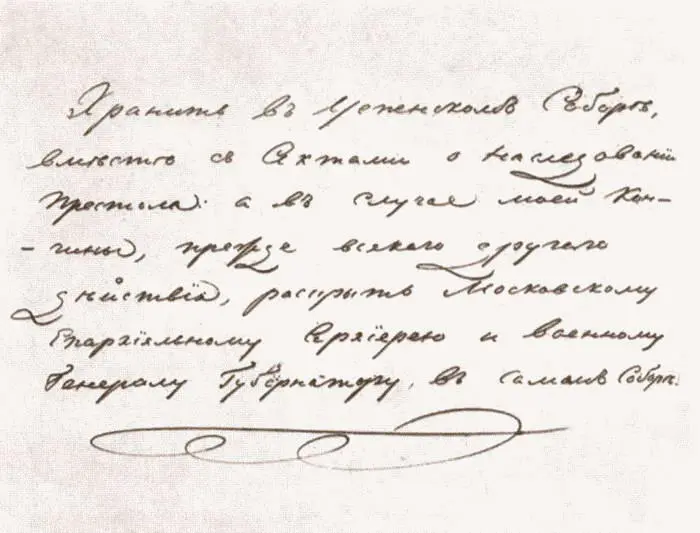 Хранить въ Успенскомъ Соборѣ,
вмѣстѣ съ Актами о наслѣдованіи
Престола: а въ случаѣ моей кон-
-чины, прежде всякаго другаго
дѣйствія, раскрыть Московскому
Епархіяльному Архіерею и военному
Генералу Губернатору, въ самомъ Соборѣ.